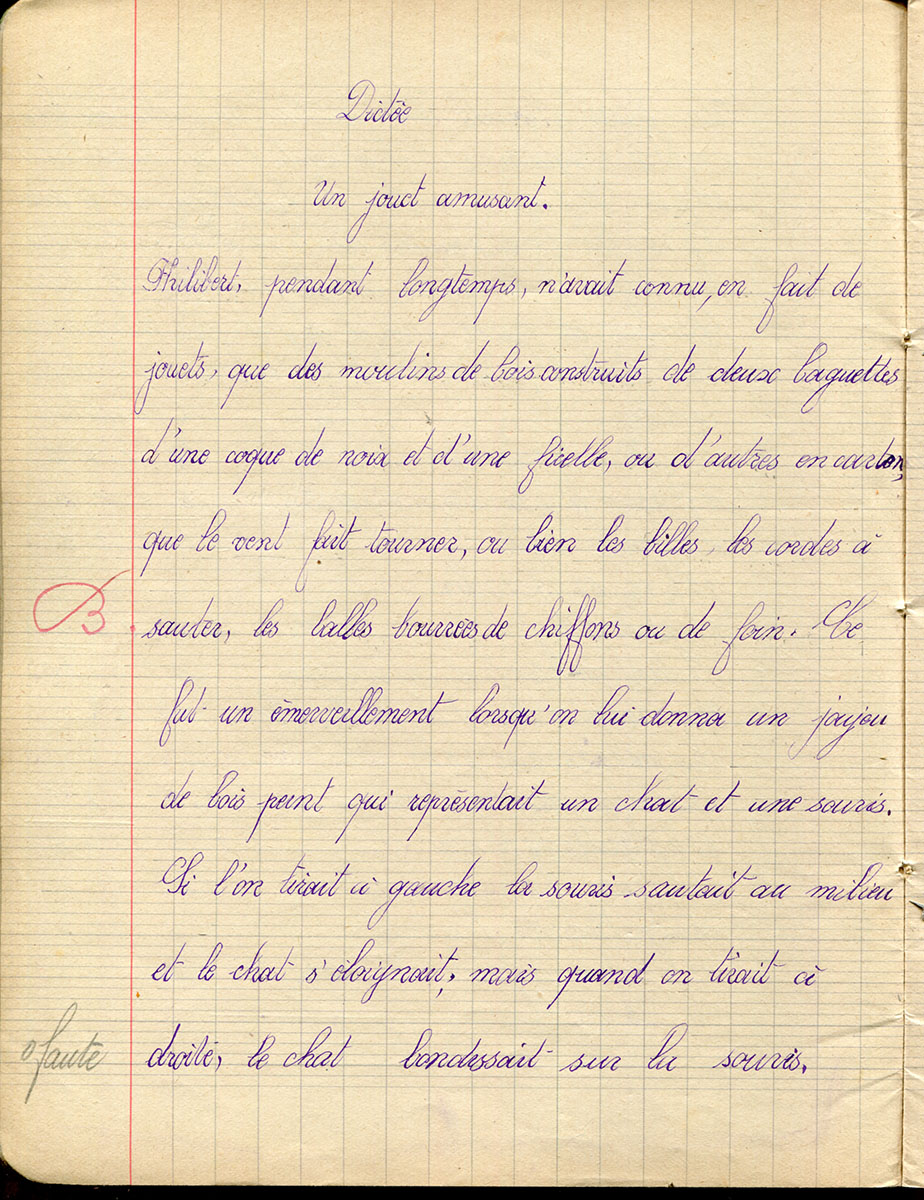 Dictée
Un jouet amusant.
Philibert, pendant longtemps, n'avait connu, en fait de
jouets, que des moulins de bois construits de deux baguettes
d'une coque de noix et d'une ficelle, ou d'autres en carton,
que le vent fait tourner, ou bien les billes, les cordes à
B
sauter, les balles bourrées de chiffons ou de foin. Ce
fut un émerveillement lorsqu'on lui donna un joujou
de bois peint qui représentait un chat et une souris.
Si l'on tirait à gauche la souris sautait au milieu
et le chat s'éloignait, mais quand on tirait à
0 faute
droite, le chat bondissait sur la souris.